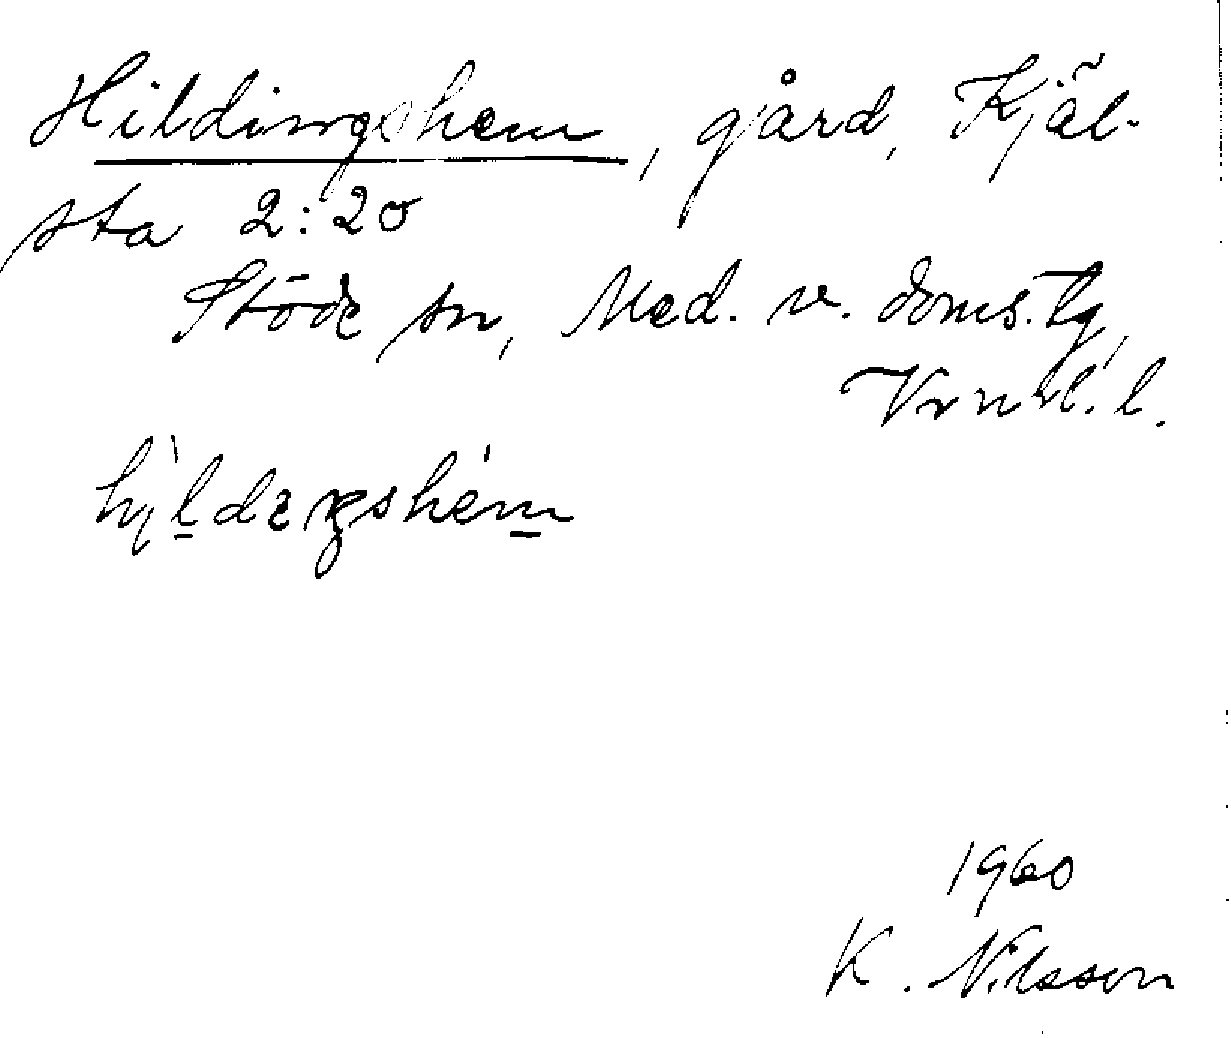 Hildingshem, gård, Kjäl-
sta 2:20
Stöde sn, Med. v. doms. tg,
Vrnl. l.
1960
K. Nilsson